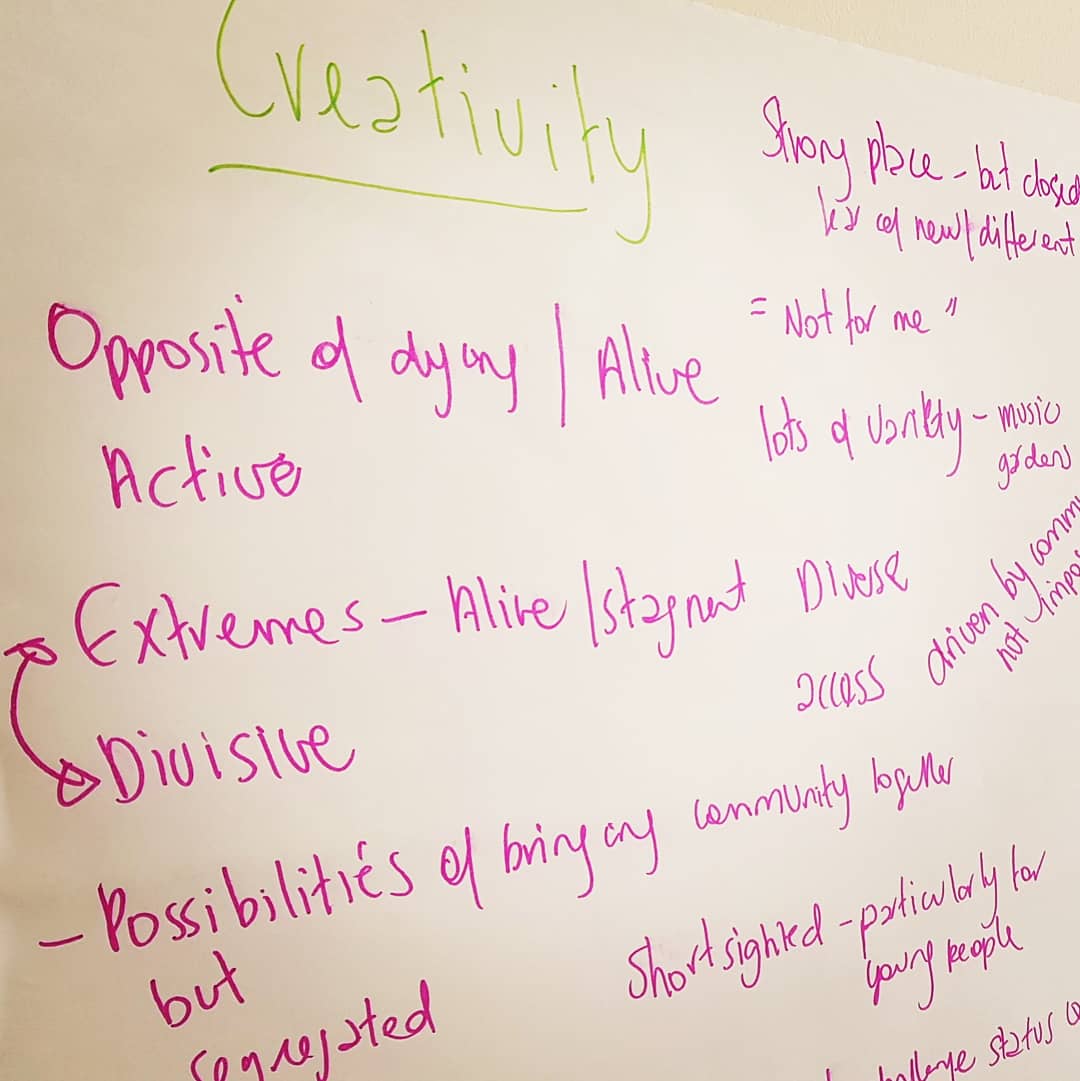 Creativity
Opposite of dying / Alive
Active
Extremes - Alive / stagnent
Divisive
- Possibilities of bringing community together
but
segregated
Strong place - but closed
of new / different
= Not for me "
lots of variety - music
gardens
Diverse
access
driven by
not
Short sighted - particularly for
young people
challenge status